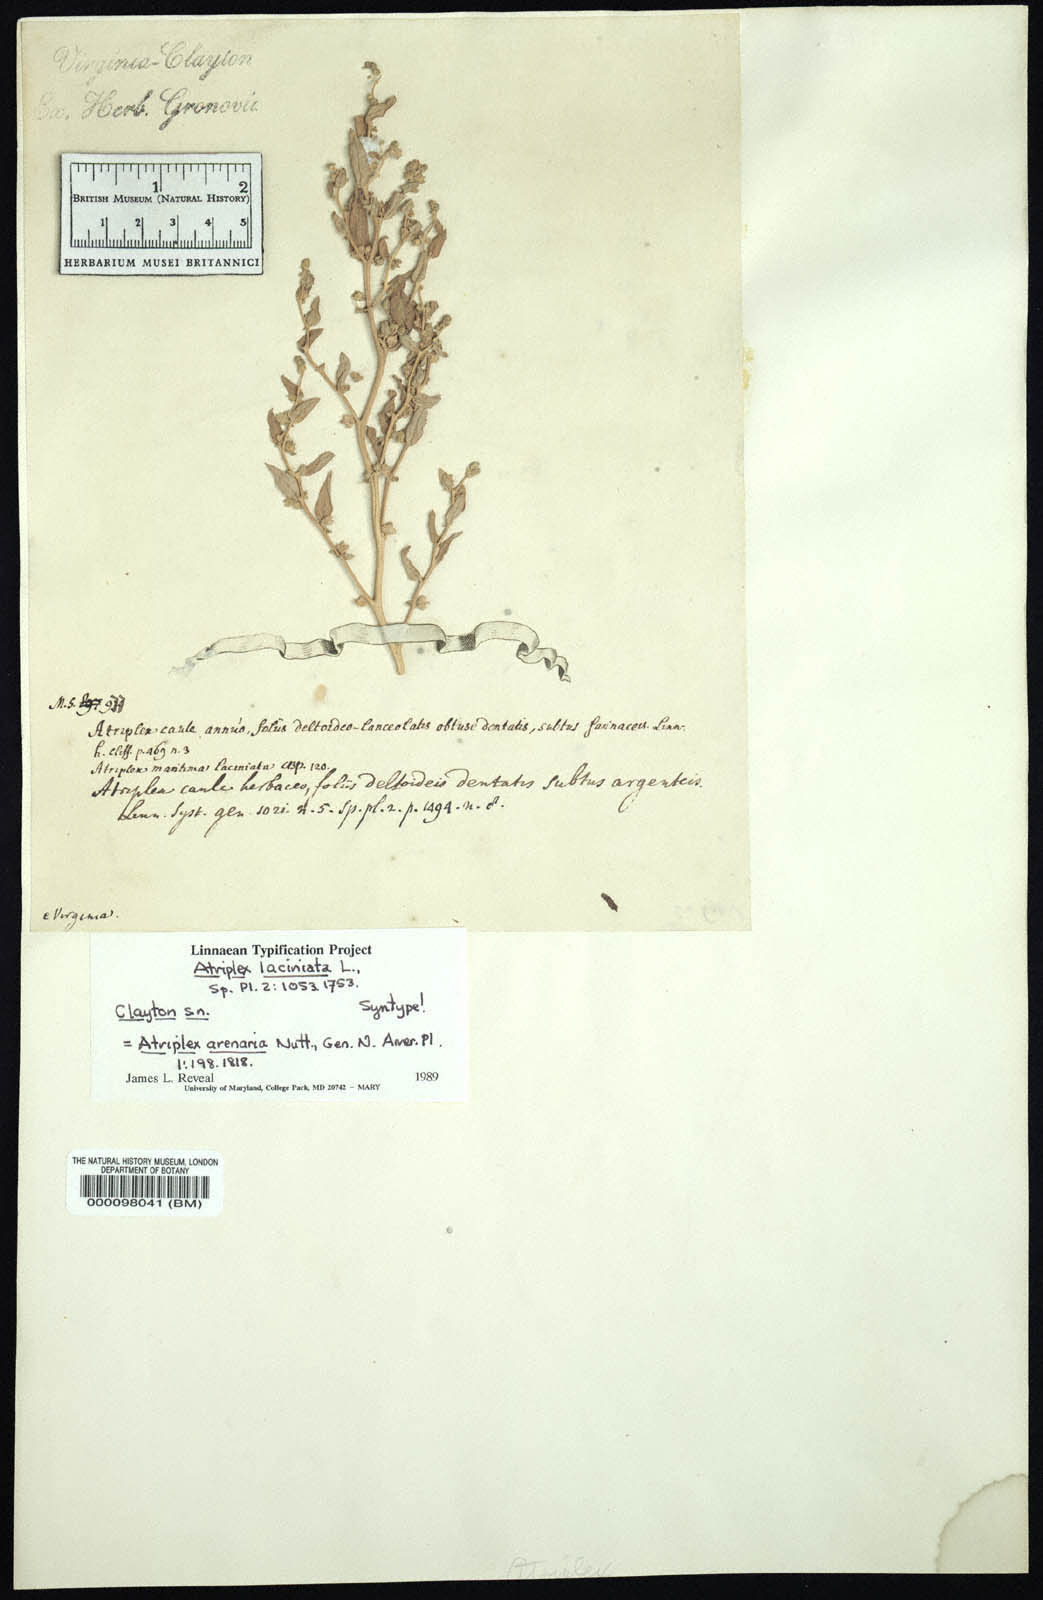 Virginia-Clayton
Ex. Herb. Gronovii
1 2
BRITISH MUSEUM (NATURAL HISTORY)
1 2 3 4 5
HERBARIUM MUSEI BRITANNICI
M.S.
Atriplex caule annuo, foliis deltoideo-lanceolatis obtuse dentatis, subtus farinaceis. Linn.
h. Cliff. p. 469 n. 3
Atriplex maritima laciniata CBp. 120.
Atriplex caule herbaceo, foliis deltoideis dentatis subtus argenteis.
Linn. Syst. gen. 1021. n. 5. Sp. pl. 2. p. 1494. n. 8.
e Virginia.
Linnaean Typification Project
Atriplex laciniata L.,
Sp. Pl. 2: 1053. 1753.
Clayton sn. Syntype!
= Atriplex arenaria Nutt., Gen. N. Amer. Pl.
1: 198. 1818.
James L. Reveal 1989
University of Maryland, College Park, MD 20742 – MARY
THE NATURAL HISTORY MUSEUM, LONDON
DEPARTMENT OF BOTANY
000098041 (BM)
Atriplex